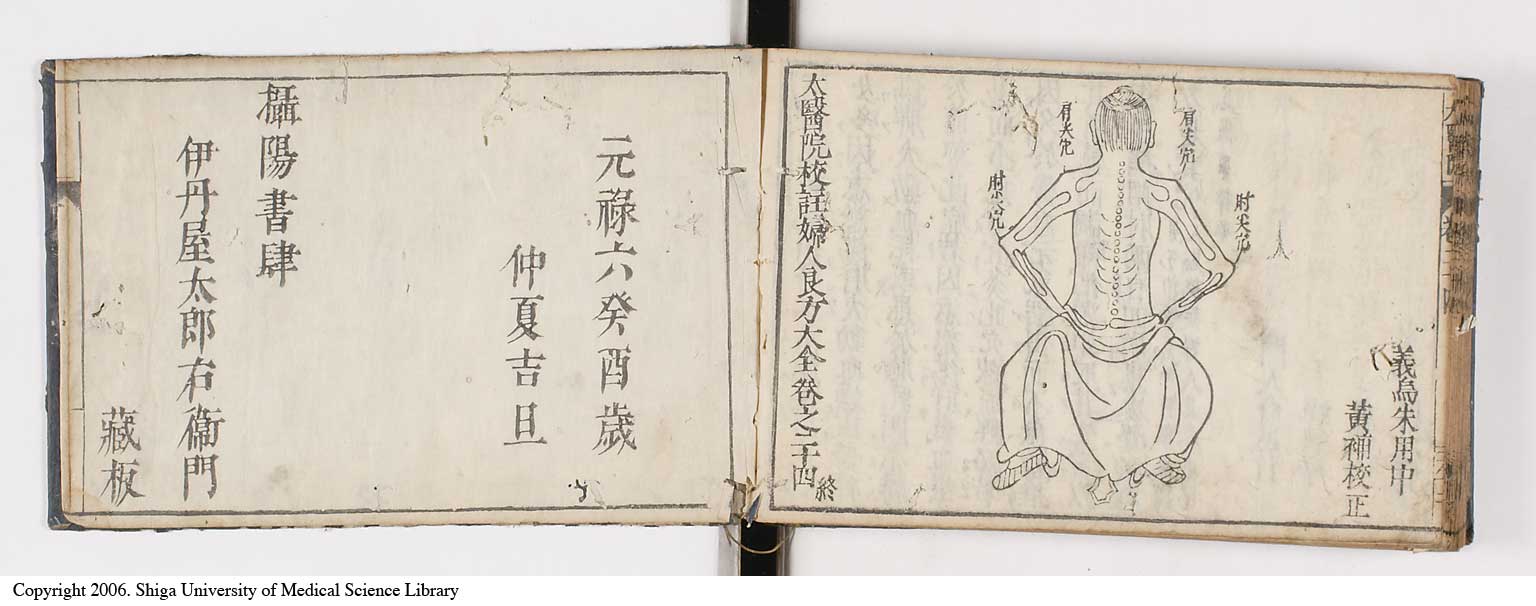 義烏朱用中
黃補校正
肘尖穴
肩尖穴
肩尖穴
肘尖穴
太醫院校註婦人良方大全卷之二十四終
元祿六癸酉歲
仲夏吉旦
攝陽書肆
伊丹屋太郎右衞門
藏板
Copyright 2006. Shiga University of Medical Science Library